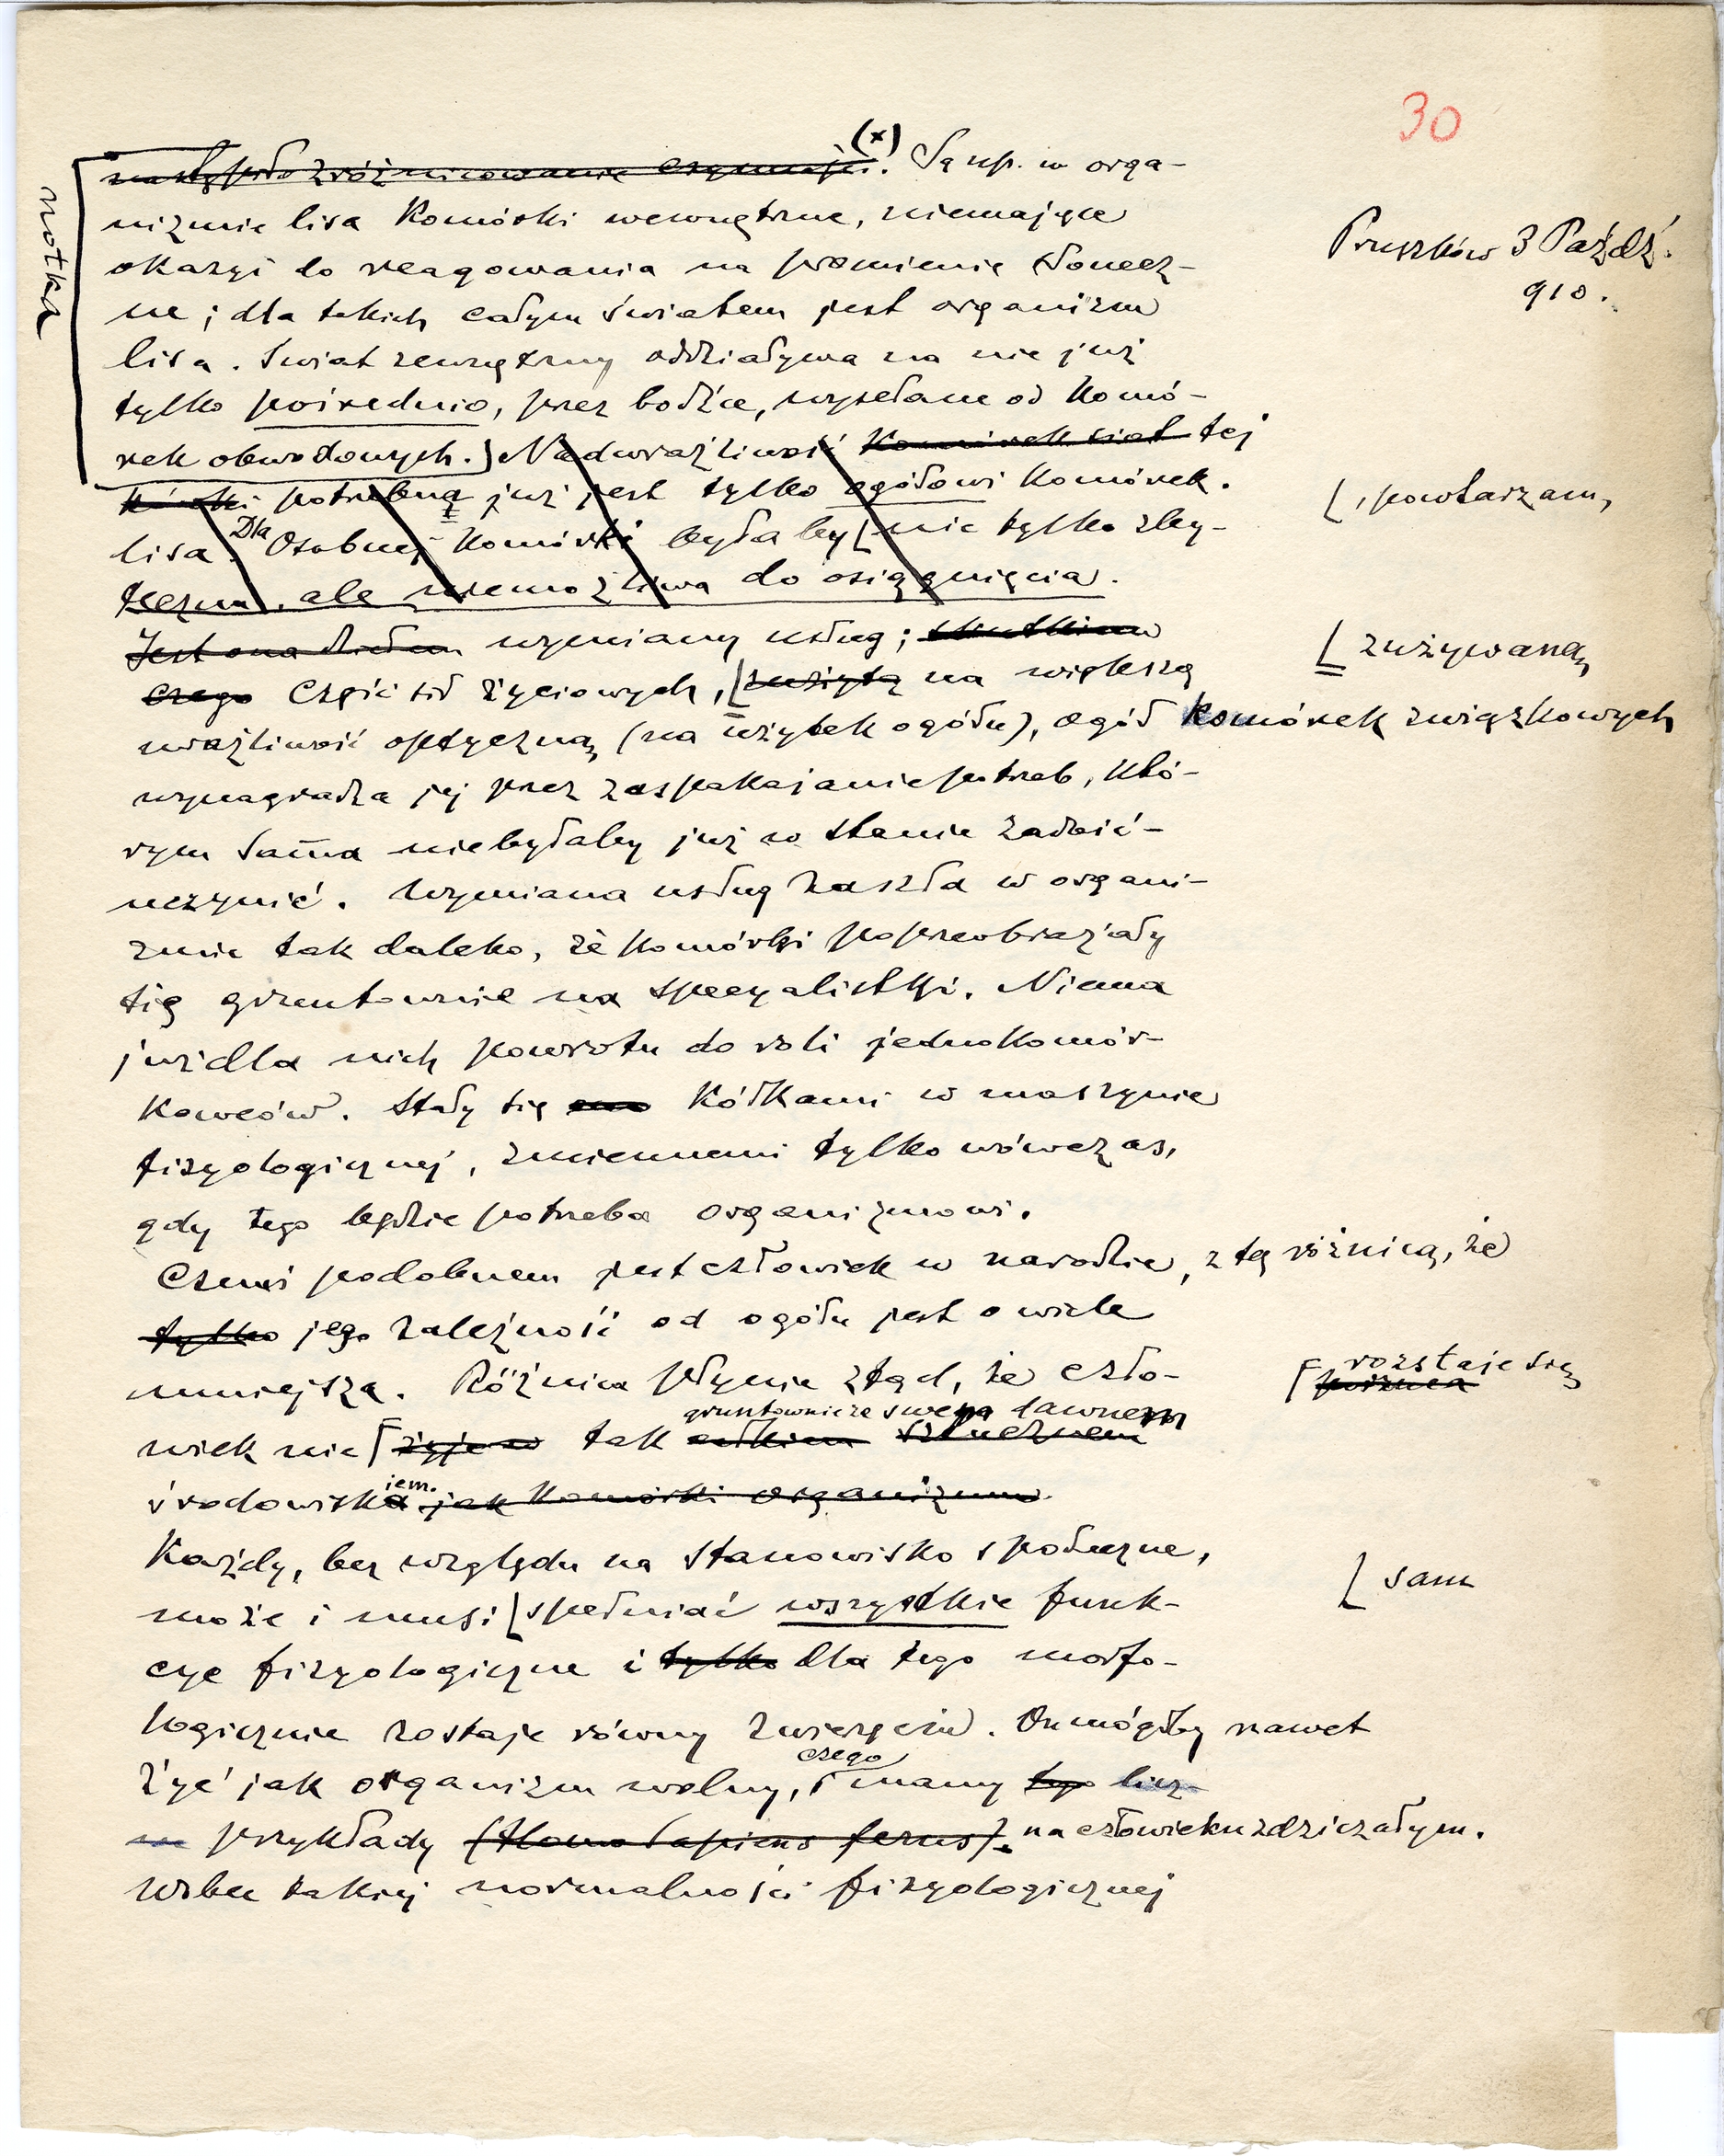 30
(x)
nastąpiło zróżnicowanie czynności. Są np. w orga-
nizmie lisa Komórki wewnętrzne, niemające
okazyi do reagowania na promienie słonecz-
ne; dla takich całym światem jest organizm
lisa. Świat zewnętrzny oddziaływa na nie już
tylko pośrednio, przez bodźce, wysełane od Komó-
rek obwodowych.) Nadwrażliwość Komórek ciał tej
potrzebną już jest tylko ogółowi Komórek.
lisa. Dla Osobnej Komórki byłaby [nie tylko zby-
teczna, ale niemożliwa do osiągnięcia.
Jest ona źródłem wymiany usług; skutkiem
czego Część sił życiowych, [zużytą na większą
wrażliwość optyczną, (na użytek ogółu), ogół Komórek związkowych
wynagradza jej przez zaspakajanie potrzeb, któ-
rym sama niebyłaby już w stanie zadość-
uczynić. Wymiana usług zaszła w organi-
zmie tak daleko, że komórki poprzeobrażały
się gruntownie na specyalistki. Niema
już dla nich powrotu do roli jednokomór-
kowców. Stały się one Kółkami w maszynie
fizyologicznej, zmiennemi tylko wówczas,
gdy tego będzie potrzeba organizmowi.
Czemś podobnem jest człowiek w narodzie, z tą różnicą, że
tylko jego zależność od ogółu jest o wiele
mniejsza. Różnica płynie ztąd, że czło-
gruntownie ze swem dawnem
wiek nie [żyje w tak całkiem sztucznem
środowiskiem. jak Komórki organizmu.
Każdy, bez względu na stanowisko społeczne,
może i musi [spełniać wszystkie funk-
cye fizyologiczne i tylko dla tego morfo-
logicznie zostaje równy zwierzęciu. On mógłby nawet
czego
żyć jak organizm wolny, [mamy tego licz-
ne przykłady (Homo sapiens ferus). na człowieku zdziczałym.
Wobec takiej normalności fizyologicznej
notka
Pruszków 3 Paźdź.
910.
[, powtarzam,
[ zużywaną,
[ rozstaje się
[ sam